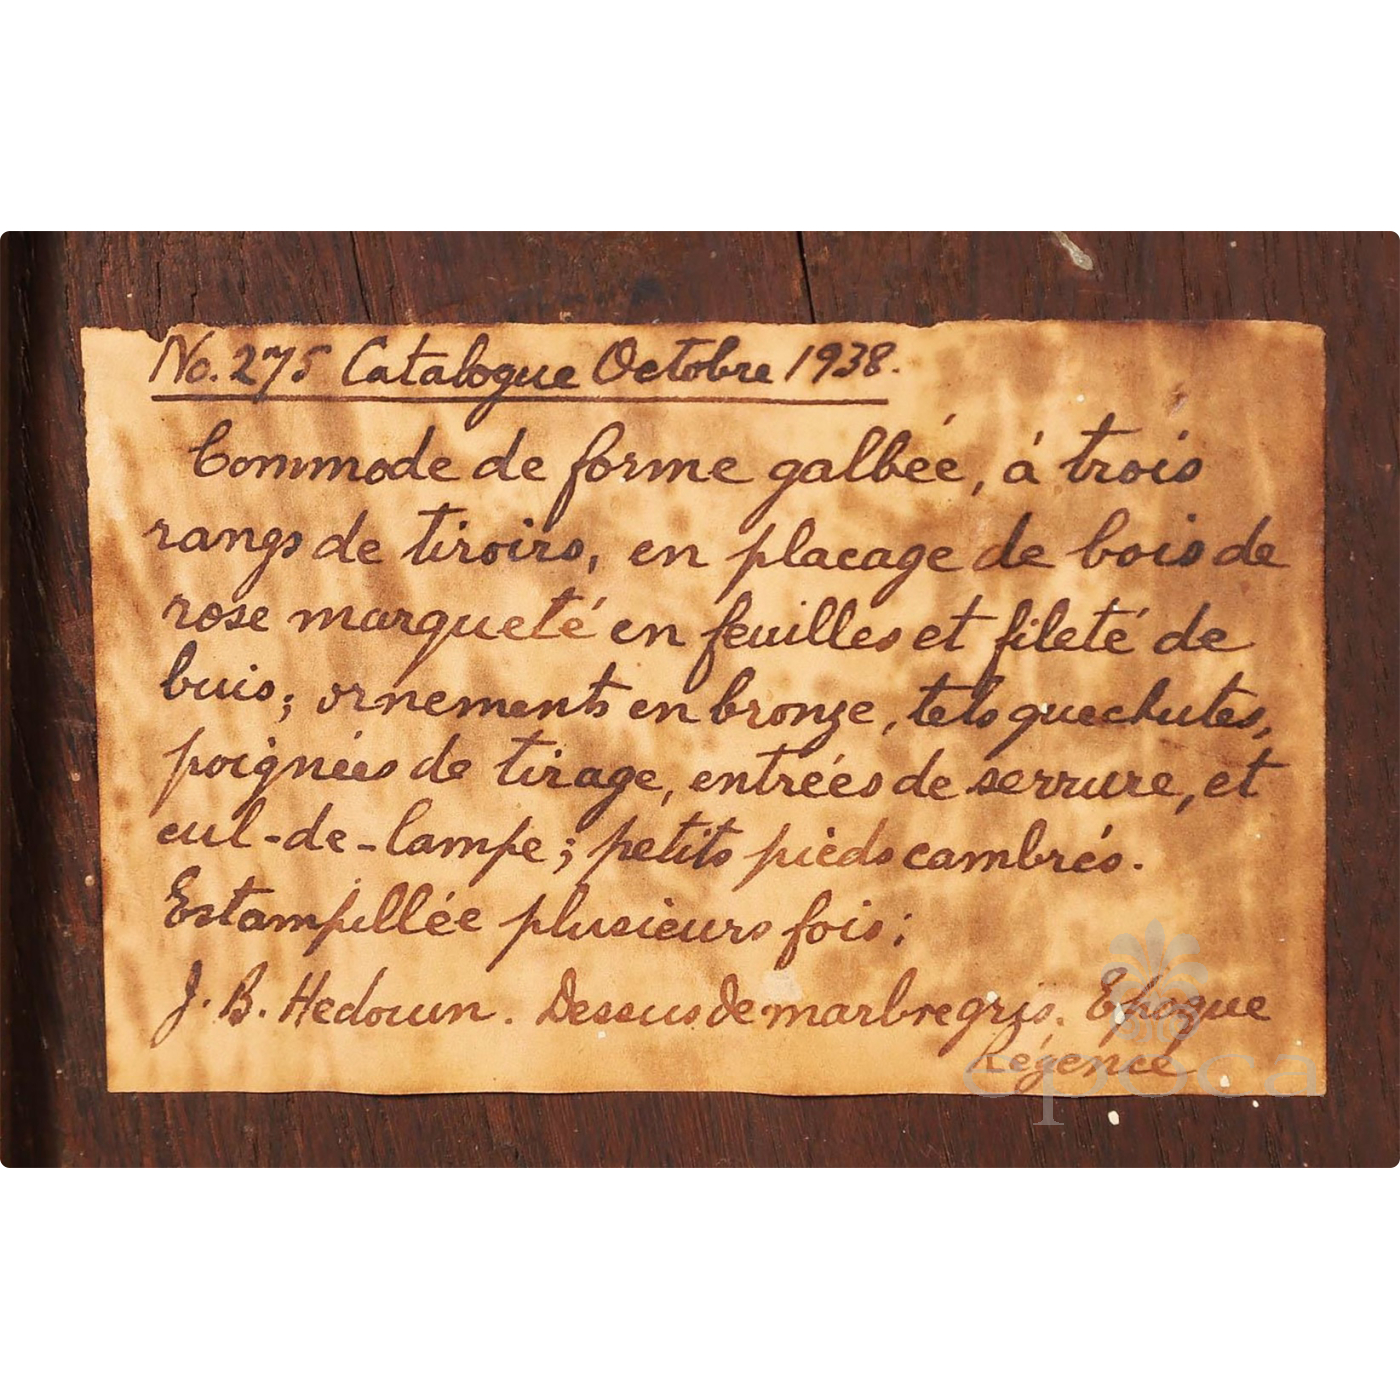 No. 275 Catalogue Octobre 1938.
Commode de forme galbée, à trois
rangs de tiroirs, en placage de bois de
rose marqueté en feuilles et fileté de
buis; ornements en bronze, tels que chutes,
poignées de tirage, entrées de serrure, et
cul-de-lampe; petits pieds cambrés.
Estampillée plusieurs fois;
J. B. Hedouin. Dessus de marbre gris. Epoque
Régence
epoca